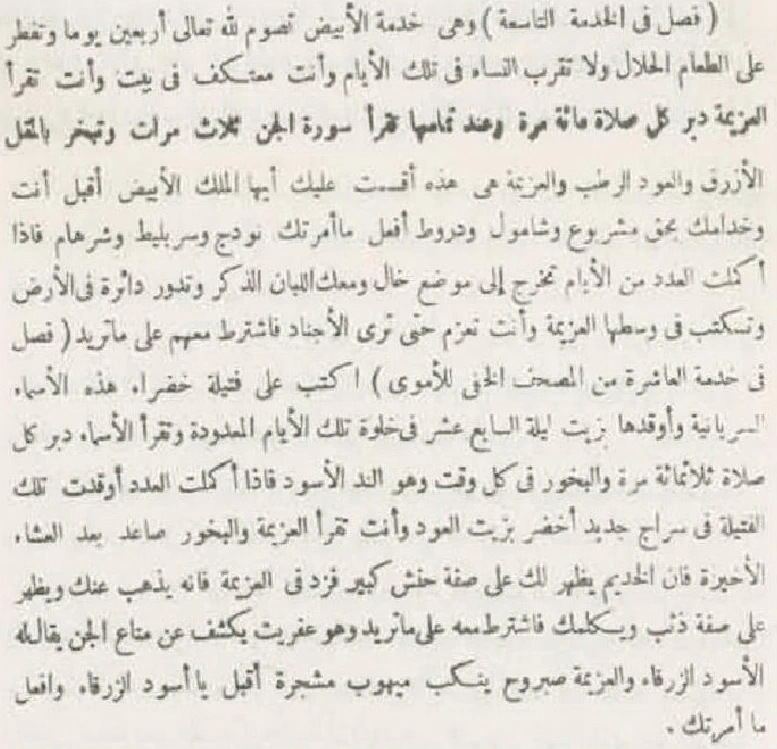 ( فصل فى الخدمة التاسعة ) وهى خدمة الأبيض تصوم لله تعالى أربعين يوما وتفطر
على الطعام الحلال ولا تقرب النساء فى تلك الأيام وأنت معتكف فى بيت وأنت تقرأ
العزيمة دبر كل صلاة مائة مرة وعند تمامها تقرأ سورة الجن ثلاث مرات وتبخر بالمقل
الأزرق والعود الرطب والعزيمة هى هذه أقسمت عليك أيها الملك الأبيض أقبل أنت
وخدامك بحق مشربوع وشامول ودروط أفعل ماأمرتك نودج وسربليط وشرهام فاذا
أكملت العدد من الأيام تخرج إلى موضع خال ومعك اللبان الذكر وتدور دائرة فى الأرض
وتسكتب فى وسطها العزيمة وأنت تعزم حتى ترى الأجناد فاشترط معهم على ماتريد ( فصل
فى خدمة العاشرة من المصحف الخفى للأموى ) اكتب على فتيلة خضراء هذه الأسماء
السريانية وأوقدها بزيت ليلة السابع عشر فى خلوة تلك الأيام المعدودة وتقرأ الأسماء دبر كل
صلاة ثلاثمائة مرة والبخور فى كل وقت وهو الند الأسود فاذا أكملت العدد أوقدت تلك
الفتيلة فى سراج جديد أخضر بزيت العود وأنت تقرأ العزيمة والبخور صاعد بعد العشاء
الأخيرة فان الخديم يظهر لك على صفة حفش كبير فزد فى العزيمة فانه يذهب عنك ويظهر
على صفة ذئب ويسكلمك فاشترط معه على ماتريد وهو عفريت يكشف عن متاع الجن يقال له
الأسود الزرقاء والعزيمة صبروح ينكب ميهوب مشجرة أقبل يا أسود الزرقاء وافعل
ما أمرتك .